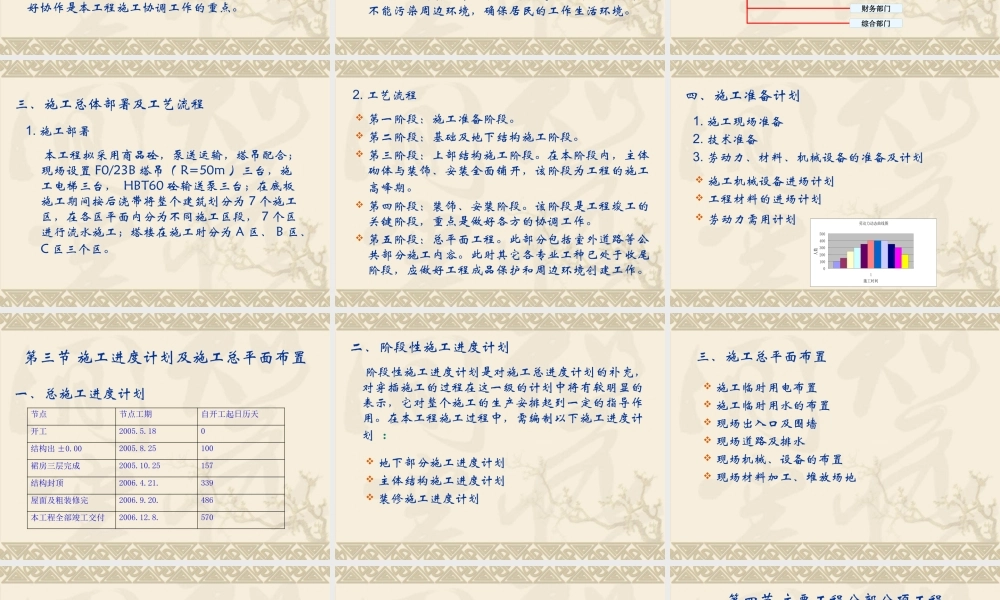 好协作是本工程施工协调工作的重点。
不能污染周边环境，确保居民的工作生活环境。
财务部门
综合部门
三、施工总体部署及工艺流程
1. 施工部署
本工程拟采用商品砼，泵送运输，塔吊配合；
现场设置 F0/23B 塔吊（ R=50m ）三台，施
工电梯三台， HBT60 砼输送泵三台；在底板
施工期间按后浇带将整个建筑划分为 7 个施工
区，在各区平面内分为不同施工区段，7 个区
进行流水施工；塔楼在施工时分为 A 区、 B 区、
C 区三个区。
2. 工艺流程
第一阶段：施工准备阶段。
第二阶段：基础及地下结构施工阶段。
第三阶段：上部结构施工阶段。在本阶段内，主体
砌体与装饰、安装全面铺开，该阶段为工程的施工
高峰期。
第四阶段：装饰、安装阶段。该阶段是工程竣工的
关键阶段，重点是做好各方的协调工作。
第五阶段：总平面工程。此部分包括室外道路等公
共部分施工内容。此时其它各专业工种已处于收尾
阶段，应做好工程成品保护和周边环境创建工作。
四、施工准备计划
1. 施工现场准备
2. 技术准备
3. 劳动力、材料、机械设备的准备及计划
施工机械设备进场计划
工程材料的进场计划
劳动力需用计划
第三节 施工进度计划及施工总平面布置
一、总施工进度计划
节点 节点工期 自开工起日历天
开工 2005.5.18 0
结构出 ±0.00 2005.8.25 100
裙房三层完成 2005.10.25 157
结构封顶 2006.4.21. 339
屋面及粗装修完 2006.9.20. 486
本工程全部竣工交付 2006.12.8. 570
二、阶段性施工进度计划
阶段性施工进度计划是对施工总进度计划的补充，
对穿插施工的过程在这一级的计划中将有较明显的
表示，它对整个施工的生产安排起到一定的指导作
用。在本工程施工过程中，需编制以下施工进度计
划 ：
地下部分施工进度计划
主体结构施工进度计划
装修施工进度计划
三、施工总平面布置
施工临时用电布置
施工临时用水的布置
现场出入口及围墙
现场道路及排水
现场机械、设备的布置
现场材料加工、堆放场地
第四节 主要工程分部分项工程